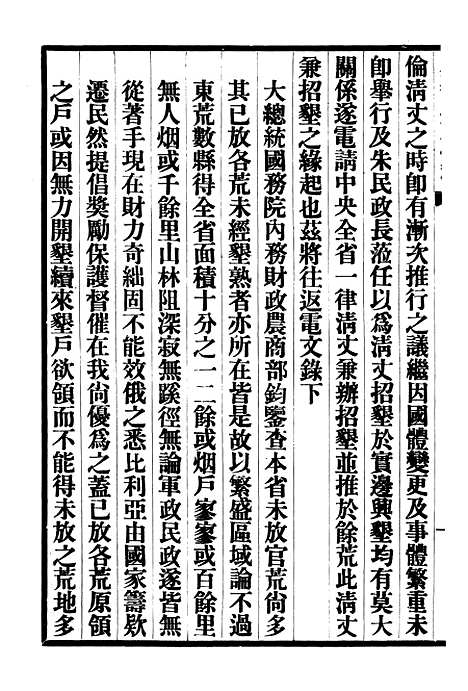 倫淸丈之時卽有漸次推行之議繼因國體變更及事體繁重未
卽舉行及朱民政長蒞任以爲淸丈招墾於實邊興墾均有莫大
關係遂電請中央全省一律淸丈兼辦招墾並推於餘荒此淸丈
兼招墾之緣起也茲將往返電文錄下
大總統國務院內務財政農商部鈞鑒查本省未放官荒尙多
其已放各荒未經墾熟者亦所在皆是故以繁盛區域論不過
東荒數縣得全省面積十分之一二餘或烟戶寥寥或百餘里
無人烟或千餘里山林阻深寂無蹊徑無論軍政民政遂皆無
從著手現在財力奇絀固不能效俄之悉比利亞由國家籌欵
遷民然提倡獎勵保護督催在我尙優爲之蓋已放各荒原領
之戶或因無力開墾續來墾戶欲領而不能得未放之荒地多